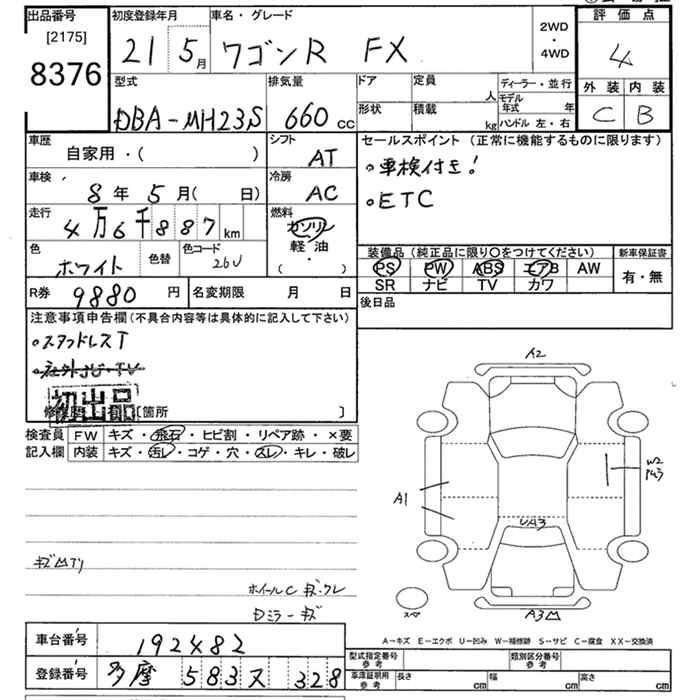 出品番号
[2175]
8376
初度登録年月
21 5月
車名・グレード
ワゴンR FX
2WD
・
4WD
評価点
4
外装 内装
C B
型式
DBA-MH23S
排気量
660 cc
ドア
定員
人
形状
積載
kg
ディーラー・並行
モデル年式 年
ハンドル 左・右
車歴
自家用・( )
シフト
AT
車検
8年5月( 日)
冷房
AC
走行
4万6千887km
燃料
ガソリン
軽油
・
( )
色
ホワイト
色替
色コード
26U
R券 9880円
名変期限 月 日
セールスポイント(正常に機能するものに限ります)
・車検付き!
・ETC
装備品(純正品に限り〇をつけてください)
PS PW ABS エアB AW
SR ナビ TV カワ
新車保証書
有・無
後日品
注意事項申告欄(不具合内容等は具体的に記入して下さい)
・スタッドレスT
・社外JU・TV
初出品
[箇所 ]
検査員記入欄
FW キズ・飛石・ヒビ割・リペア跡・×要
内装 キズ・汚レ・コゲ・穴・スレ・キレ・破レ
ホイールC キズ・クレ
Dミラーキズ
A2
A1
W2
UA3
A3凹
スペア
A-キズ E-エクボ U-凹み W-補修跡 S-サビ C-腐食 XX-交換済
車台番号 192482
登録番号 多摩 583 ヌ 328
型式指定番号
参考
類別区分番号
参考
車庫証明用
参考
長さ cm
幅 cm
高さ cm